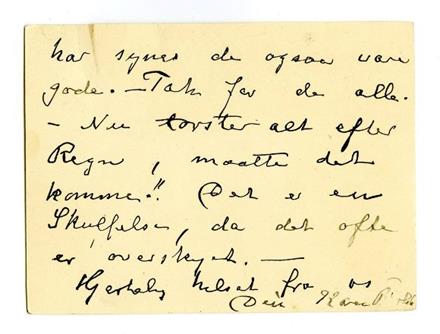 har synes de ogsaa vare
gode. — Tak for de alle.
— Nu torster alt efter
Regn, maatte det
komme!! Det er en
Skuffelse, da det ofte
er overskyet. —
Hjertelig hilset fra os
Din